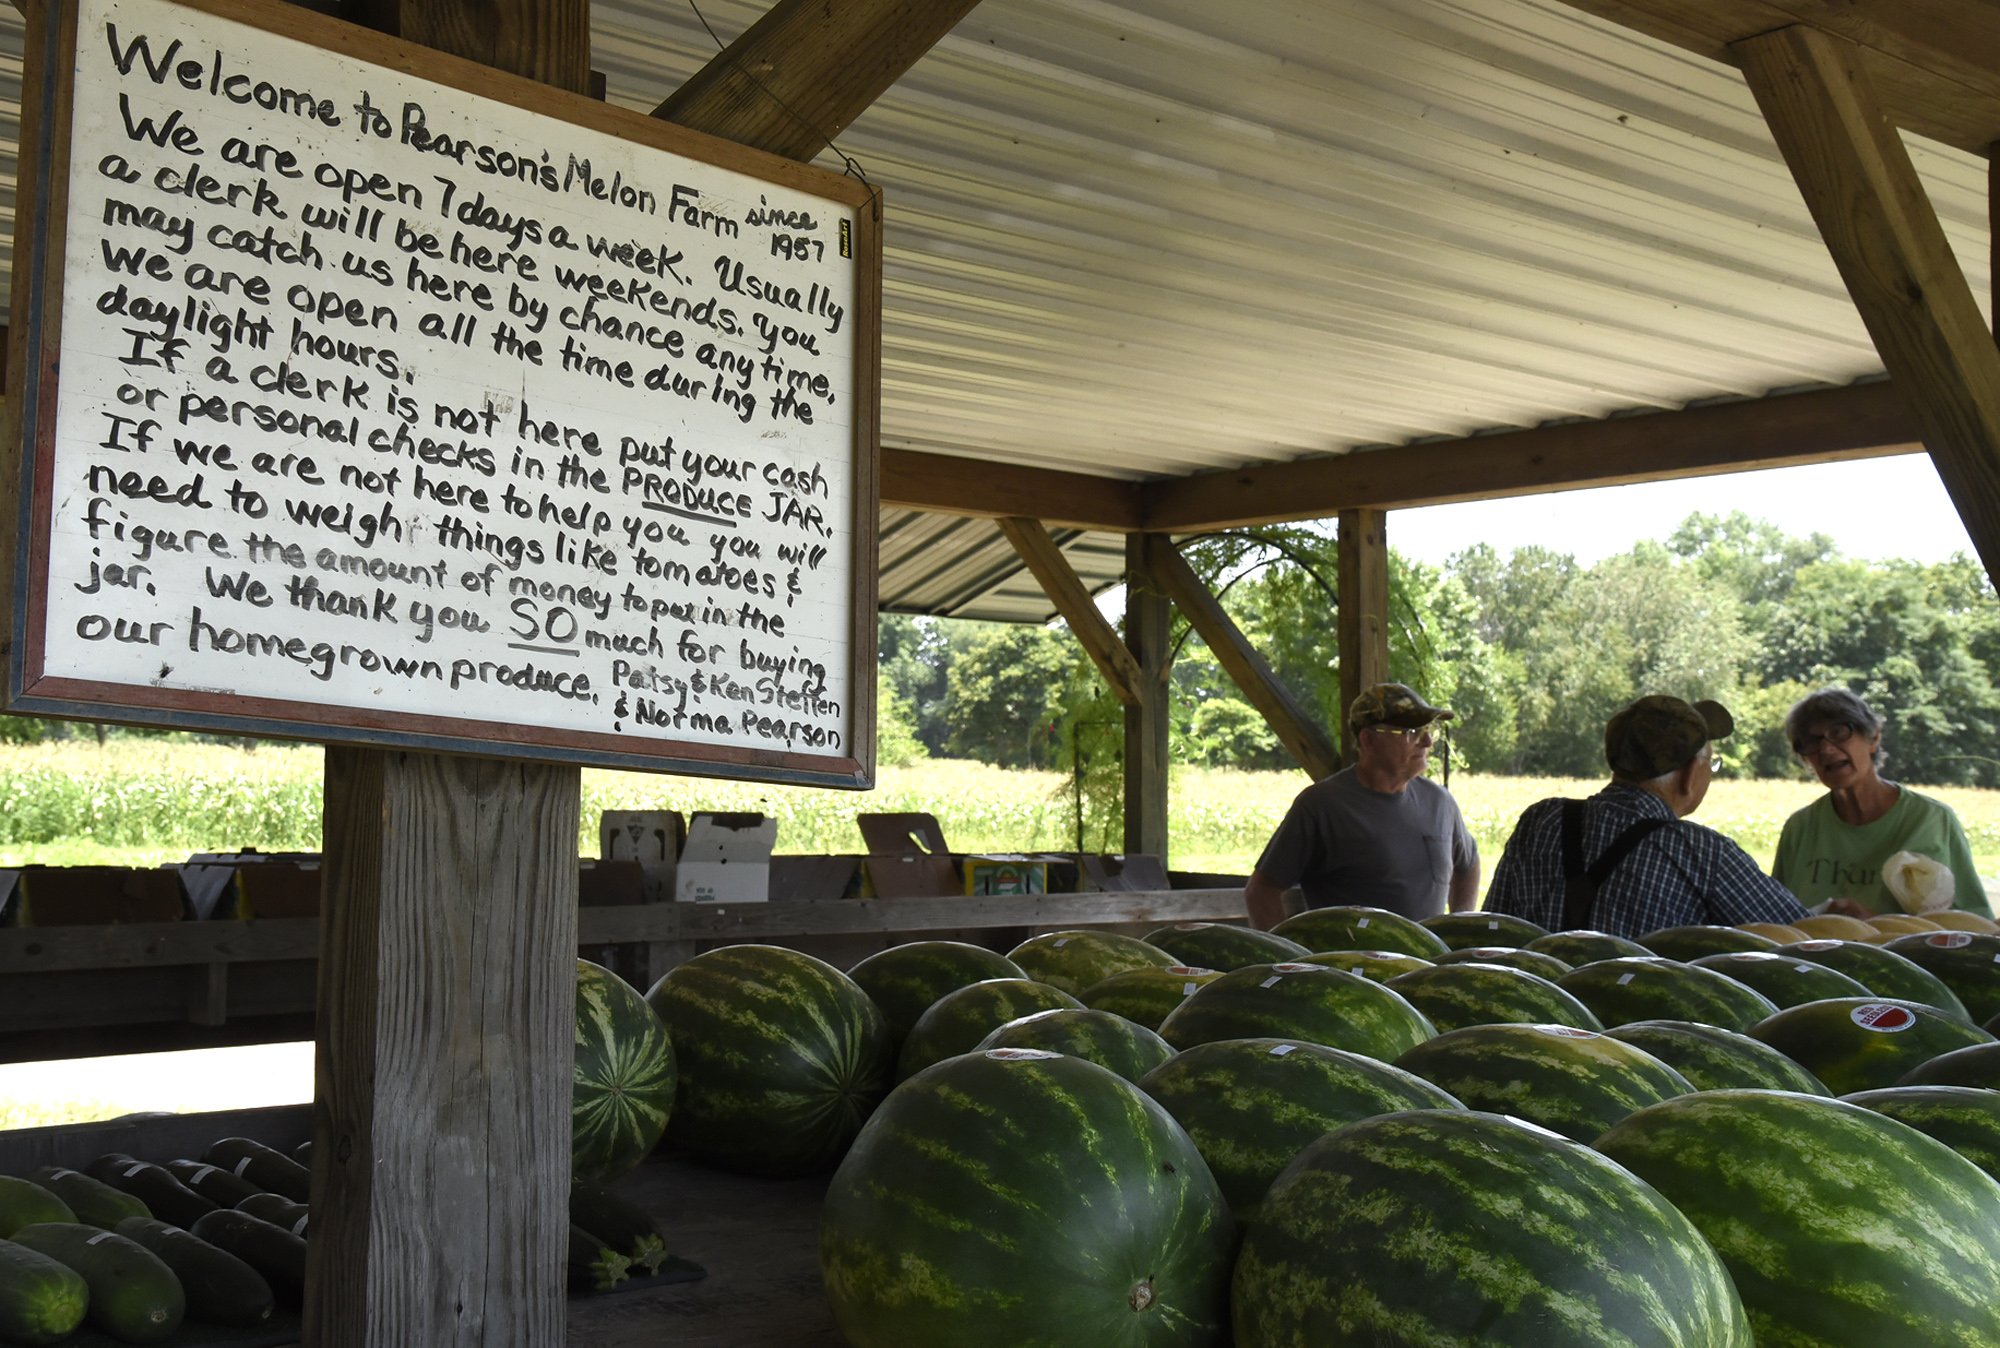 Welcome to Pearson's Melon Farm since 1957
We are open 7 days a week. Usually
a clerk will be here weekends. You
may catch us here by chance any time.
We are open all the time during the
daylight hours.
If a clerk is not here put your cash
or personal checks in the PRODUCE JAR.
If we are not here to help you you will
need to weigh things like tomatoes &
figure the amount of money to put in the
jar. We thank you SO much for buying
our homegrown produce. Patsy & Ken Steffen
& Norma Pearson
RoseArt
RED SEEDLESS